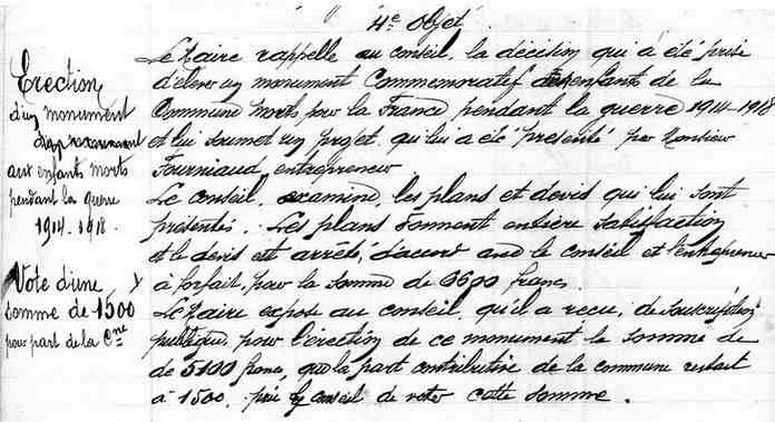 4e Objet
Erection
d'un monument
aux enfants morts
pendant la guerre
1914-1918.
Vote d'une
somme de 1500
pour part de la Cne
Le Maire rappelle au conseil, la décision qui a été prise
d'élever un monument Commemoratif des enfants de la
Commune morts pour la France pendant la guerre 1914-1918
et lui soumet un projet qui lui a été présenté par Monsieur
Fourniaud, entrepreneur
Le conseil, examine, les plans et devis qui lui sont
présentés. Les plans donnent entière satisfaction
et le devis est arrêté, d'accord avec le conseil et l'entrepreneur
à forfait, pour la somme de 6600 francs.
Le Maire expose au conseil, qu'il a reçu, de souscription
publique, pour l'érection de ce monument la somme de
de 5100 francs, que la part contributive de la commune restait
à 1500, prie le conseil de voter cette somme.